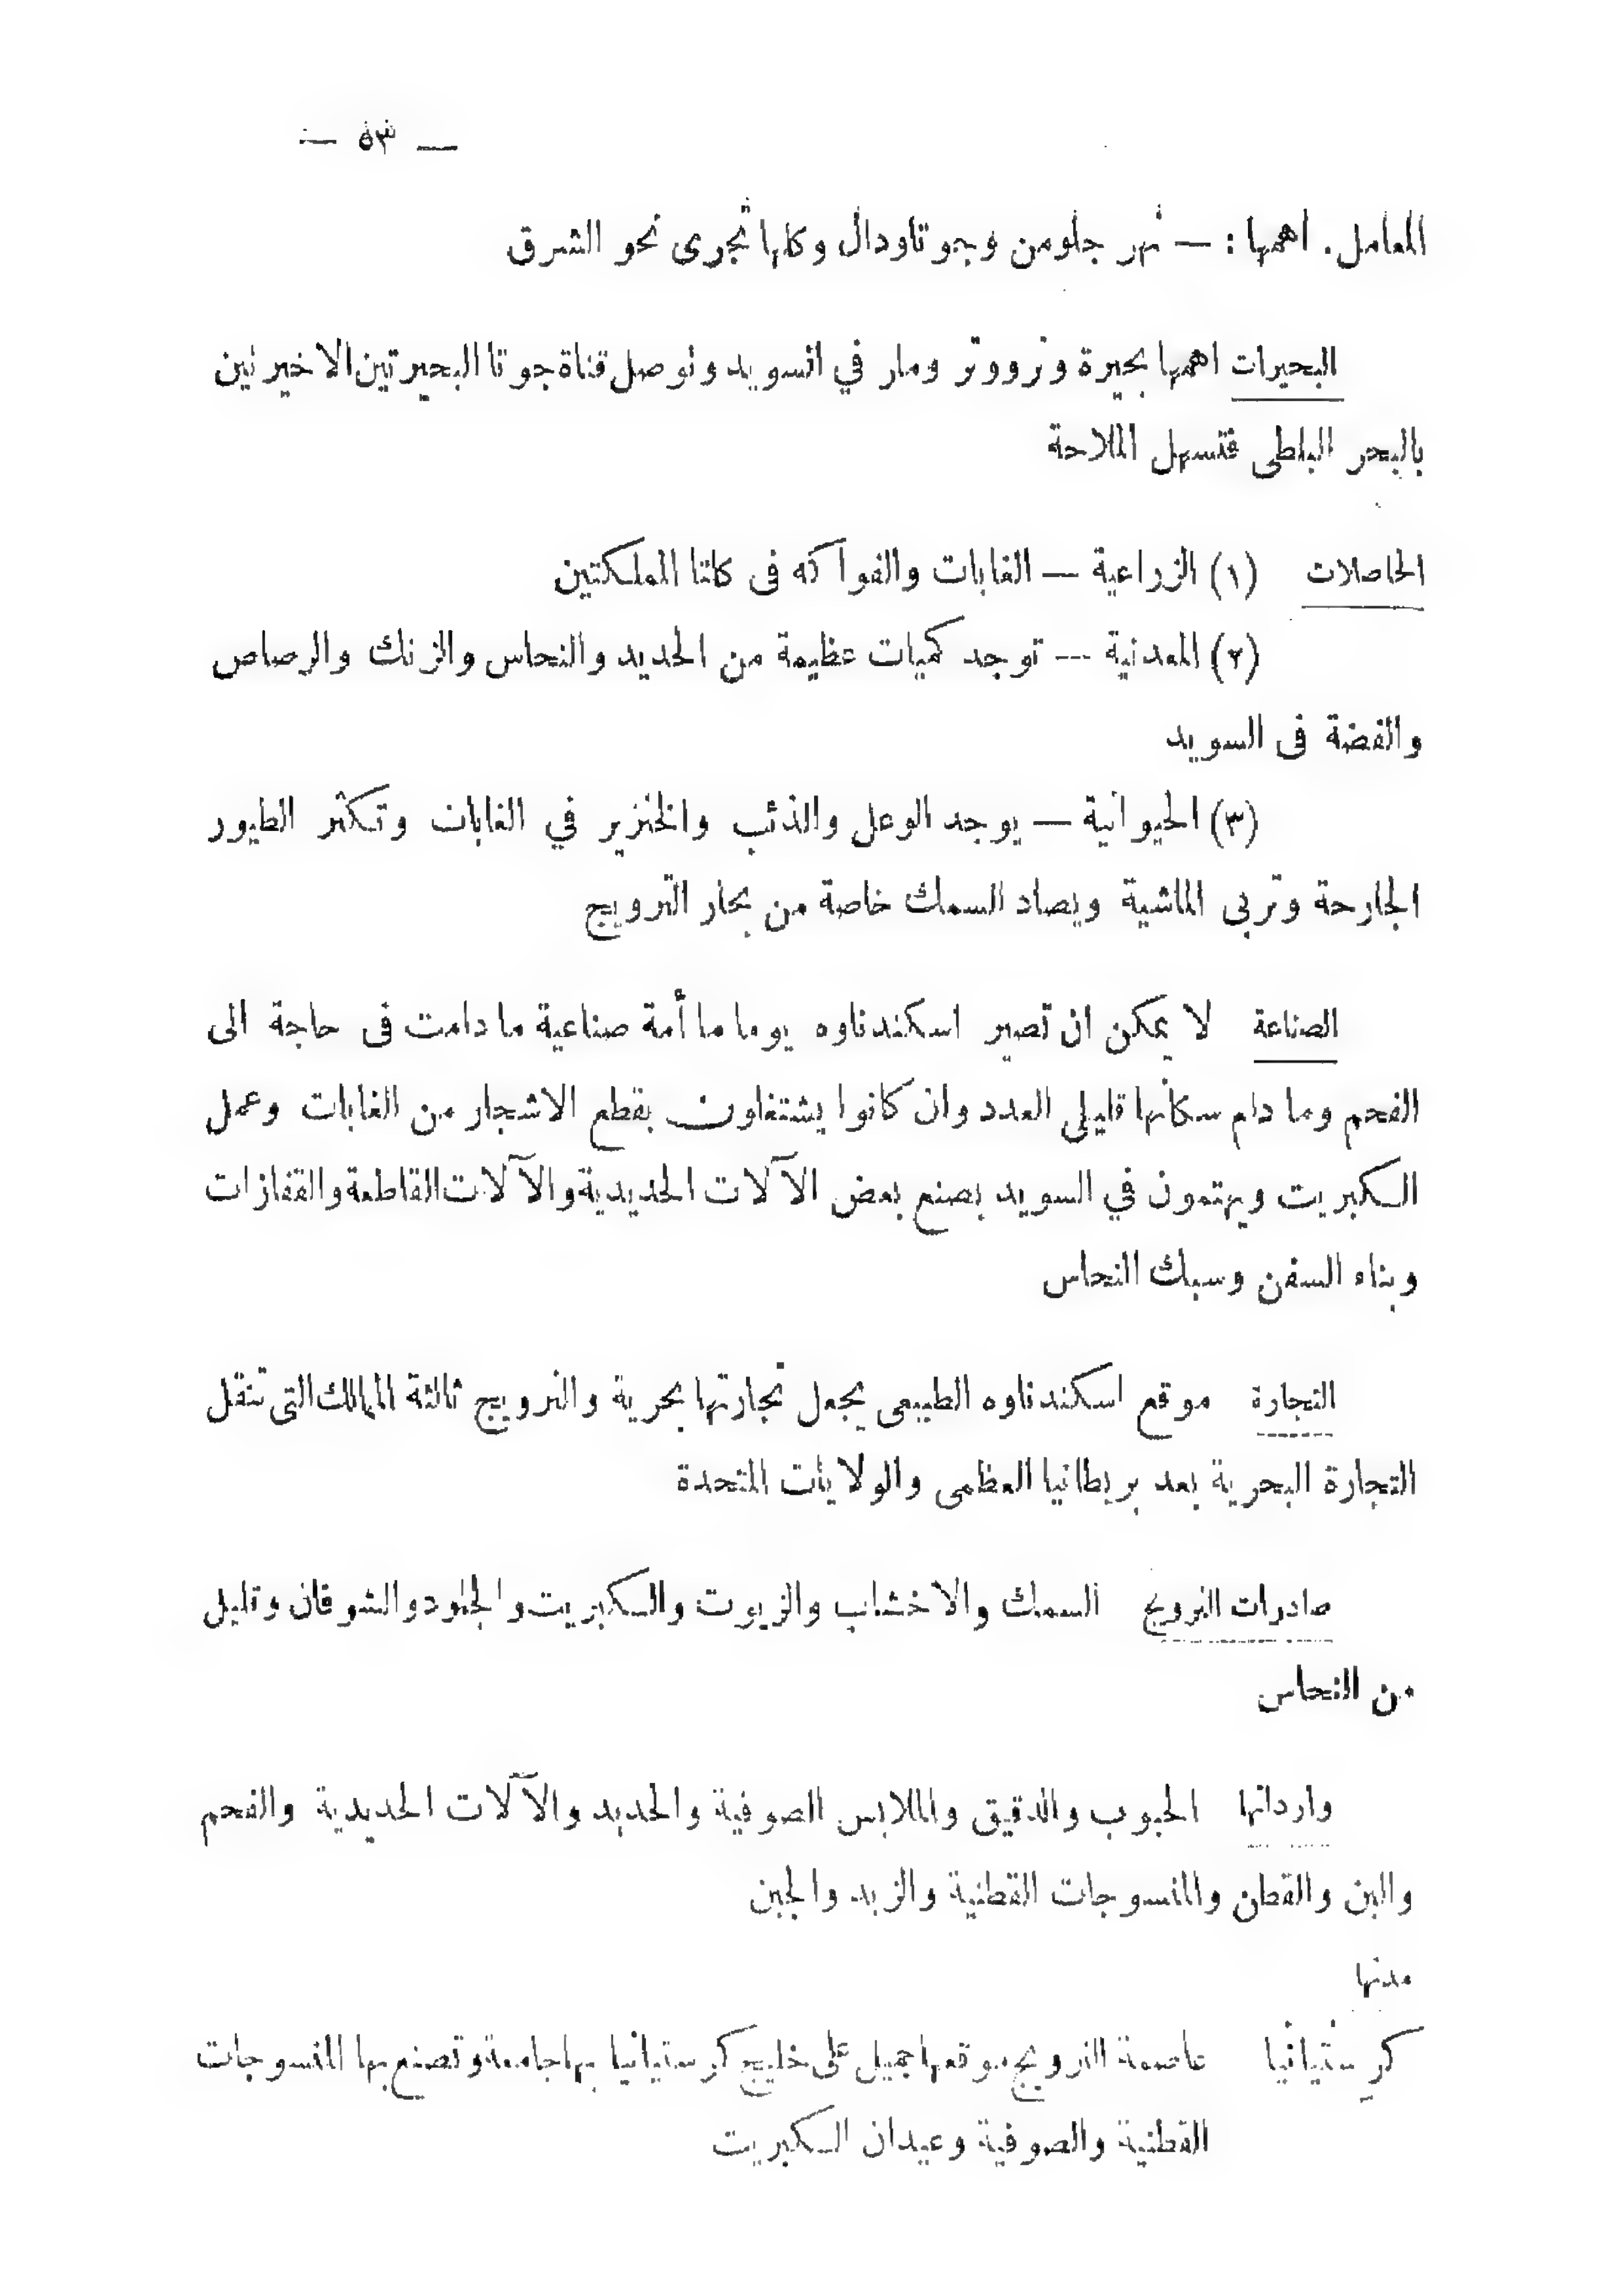 — ٥٣ —
المعامل. اهمها : — نهر جلومن وجوتاودال وكلها تجرى نحو الشرق
البحيرات اهمها بحيرة ونرووتر ومار في السويد وتوصل قناة جوتا البحيرتين الاخيرتين
بالبحر البلطى فتسهل الملاحة
الحاصلات (١) الزراعية — الغابات والفواكه فى كلتا المملكتين
(٢) المعدنية — توجد كميات عظيمة من الحديد والنحاس والزنك والرصاص
والفضة فى السويد
(٣) الحيوانية — يوجد الوعل والذئب والخنزير في الغابات وتكثر الطيور
الجارحة وتربى الماشية ويصاد السمك خاصة من بحار النرويج
الصناعة لا يمكن ان تصير اسكندناوه يوما ما أمة صناعية ما دامت فى حاجة الى
الفحم وما دام سكانها قليلى العدد وان كانوا يشتغلون بقطع الاشجار من الغابات وعمل
الكبريت ويهتمون في السويد بصنع بعض الآلات الحديدية والآلات القاطعة والقفازات
وبناء السفن وسبك النحاس
التجارة موقع اسكندناوه الطبيعى يجعل تجارتها بحرية والنرويج ثالثة الممالك التى تنقل
التجارة البحرية بعد بريطانيا العظمى والولايات المتحدة
صادرات النرويج السمك والاخشاب والزيوت والكبريت والجلود والشوفان وقليل
من النحاس
وارداتها الحبوب والدقيق والملابس الصوفية والحديد والآلات الحديدية والفحم
والبن والقطن والمنسوجات القطنية والزبد والجبن
مدنها
كرستيانيا عاصمة النرويج موقعها جميل على خليج كرستيانيا بها جامعة وتصنع بها المنسوجات
القطنية والصوفية وعيدان الكبريت